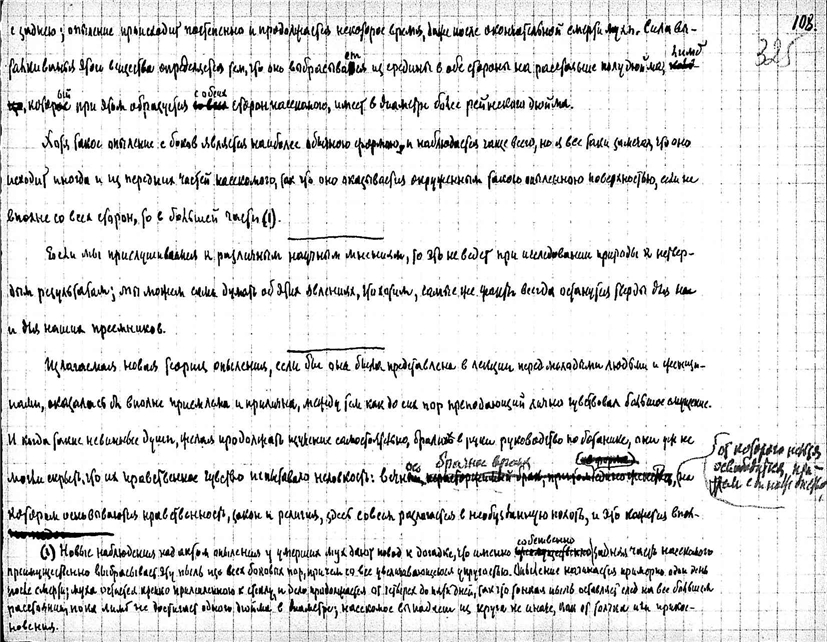 108.
325
с заднею; опыление происходит постепенно и продолжается некоторое время, даже после окончательной смерти мухи. Сила вы-
талкивания этой вещества определяется тем, что оно выбрасывается из середины в обе стороны на расстояние полудюйма; лимб
который при этом образуется с обеих сторон насекомого, имеет в диаметре более рейнского дюйма.
Хотя такое опыление с боков является наиболее обычною формою и наблюдается чаще всего, но я все таки замечал, что оно
исходит иногда и из передних частей насекомого, так что оно оказывается окруженным такою опыленною поверхностью, если не
вполне со всех сторон, то в большей части (1).
Если мы прислушиваемся к различным научным мнениям, то это не ведет при исследовании природы к невер-
ным результатам; мы можем сами думать об этих явлениях, что хотим, самые же факты всегда останутся тверды для нас
и для наших преемников.
Излагаемая новая теория опыления, если бы она была представлена в лекции перед молодыми людьми и женщи-
нами, оказалась бы вполне приемлема и прилична, между тем как до сих пор преподающий лично чувствовал большое смущение.
И когда такие невинные души, желая продолжать изучение самостоятельно, брали в руки руководство по ботанике, они уж не
могли скрыть, что их нравственное чувство испытывало неловкость: вечное брачное время, на
от которого нельзя освободиться, при
котором основываются нравственность, закон и религия, здесь совсем разлагается в необузданную похоть, и это кажется впол-
(1) Новые наблюдения над актом опыления у умерших мух дают повод к догадке, что именно собственно задняя часть насекомого
преимущественно выбрасывает эту пыль из всех боковых пор, притом со все увеличивающеюся упругостью. Опыление начинается примерно один день
после смерти; муха остается крепко прилепленною к стеклу, и дело продолжается от четырех до пяти дней, так что тонкая пыль оставляет след на все большем
расстоянии, пока лимб не достигает одного дюйма в диаметре; насекомое выпадает из круга не иначе, как от толчка или прикос-
новения.